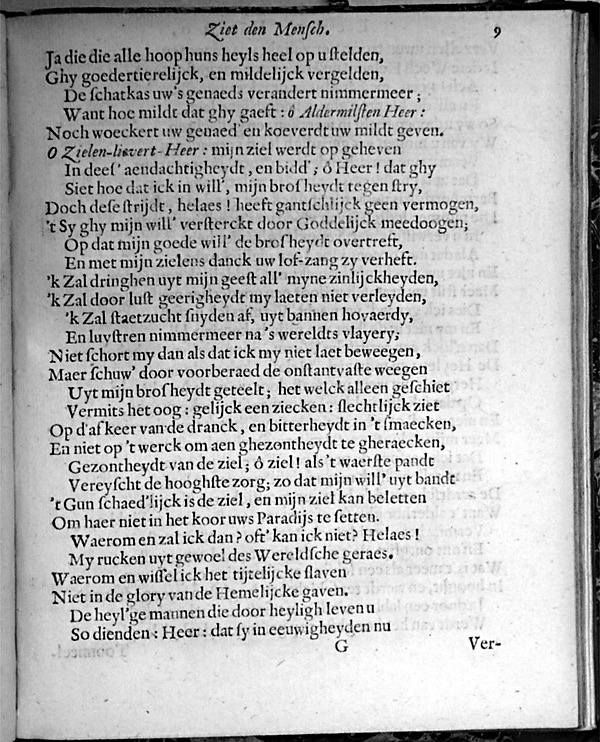 Ziet den Mensch. 9
Ja die die alle hoop huns heyls heel op u stelden,
Ghy goedertierelijck, en mildelijck vergelden,
De schatkas uw's genaeds verandert nimmermeer;
Want hoe mildt dat ghy gaeft: ô Aldermilsten Heer:
Noch woeckert uw genaed' en koeverdt uw mildt geven.
O Zielen-lievert-Heer: mijn ziel werdt op geheven
In dees' aendachtigheydt, en bidd'; ô Heer! dat ghy
Siet hoe dat ick in will', mijn brosheydt tegen stry,
Doch dese strijdt, helaes! heeft gantschlijck geen vermogen,
't Sy ghy mijn will' versterckt door Goddelijck meedoogen;
Op dat mijn goede will' de brosheydt overtreft,
En met mijn zielens danck uw lof-zang zy verheft.
'k Zal dringhen uyt mijn geest all' myne zinlijckheyden,
'k Zal door lust geerigheydt my laeten niet verleyden,
'k Zal staetzucht snyden af, uyt bannen hovaerdy,
En luystren nimmermeer na 's wereldts vlayery;
Niet schort my dan als dat ick my niet laet beweegen,
Maer schuw' door voorberaed de onstantvaste weegen
Uyt mijn brosheydt geteelt; het welck alleen geschiet
Vermits het oog: gelijck een ziecken: slechtlijck ziet
Op d'afkeer van de dranck, en bitterheydt in 't smaecken,
En niet op 't werck om aen ghezontheydt te gheraecken,
Gezontheydt van de ziel; ô ziel! als 't waerste pandt
Vereyscht de hooghste zorg; zo dat mijn will' uyt bandt
't Gun schaed'lijck is de ziel, en mijn ziel kan beletten
Om haer niet in het koor uws Paradijs te setten.
Waerom en zal ick dan? oft' kan ick niet? Helaes!
My rucken uyt gewoel des Wereldsche geraes.
Waerom en wissel ick het tijtelijcke slaven
Niet in de glory van de Hemelijcke gaven.
De heyl'ge mannen die door heyligh leven u
So dienden: Heer: dat sy in eeuwigheyden nu
G Ver-